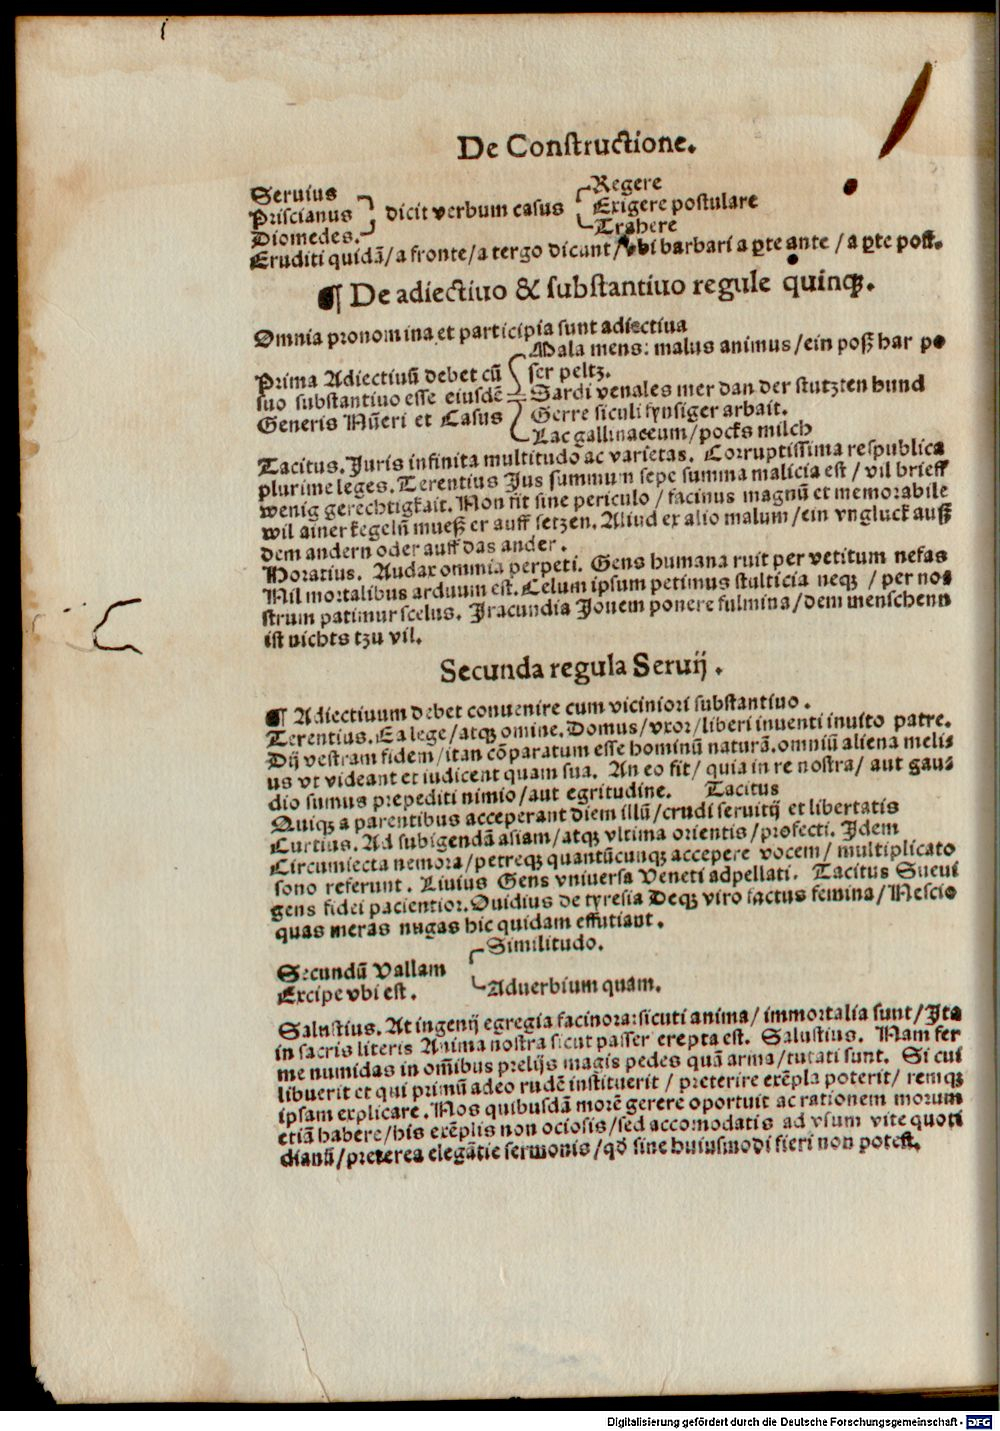 De Constructione.
Seruius
Priscianus
Diomedes.
dicit verbum casus
Regere
Exigere postulare
Trahere
Eruditi quidã/a fronte/a tergo dicunt/vbi barbari a ꝑte ante /a ꝑte post.
¶ De adiectiuo & substantiuo regule quinqꝫ.
Omnia pronomina et participia sunt adiectiua
Prima Adiectiuũ debet cũ
suo substantiuo esse eiusdẽ
Generis Nũeri et Casus
Mala mens: malus animus/ein poß har po
ser peltz.
Sardi venales mer dan der stutzten hund
Gerre siculi synsiger arbait.
Lac gallinaceum/pocks milch
Tacitus. Juris infinita multitudo ac varietas. Corruptissima respublica
plurime leges. Terentius Jus summum sepe summa malicia est/ vil brieff
wenig gerechtigkait. Non fit sine periculo / facinus magnũ et memorabile
wil ainer kegelñ mueß er auff setzen. Aliud ex alio malum/ein vngluck auß
dem andern oder auff das ander.
Horatius. Audax omnia perpeti. Gens humana ruit per vetitum nefas
Nil mortalibus arduum est. Celum ipsum petimus stulticia neqꝫ / per nos
strum patimur scelus. Jracundia Jouem ponere fulmina/dem menschenn
ist nichts tzu vil.
Secunda regula Seruij .
¶ Adiectiuum debet conuenire cum viciniori substantiuo .
Terentius. Ea lege/atqꝫ omine. Domus/vxor/liberi inuenti inuito patre.
Dij vestram fidem/itan cõparatum esse hominũ naturã. omniũ aliena meli⸗
us vt videant et iudicent quam sua. An eo fit/ quia in re nostra/ aut gau⸗
dio sumus prepediti nimio/aut egritudine. Tacitus
Quiqꝫ a parentibus acceperant diem illũ/crudi seruitij et libertatis
Curtius. Ad subigendã asiam/atqꝫ vltima orientis/profecti. Jdem
Circumiecta nemora/petreqꝫ quantũcunqꝫ accepere vocem/ multiplicato
sono referunt. Liuius Gens vniuersa Veneti adpellati. Tacitus Sueui
gens fidei pacientior. Ouidius de tyresia Deqꝫ viro factus femina/Nescio
quas meras nugas hic quidam effutiant.
Secundũ Vallam
Excipe vbi est.
Similitudo.
Aduerbium quam.
Salustius. At ingenij egregia facinora: sicuti anima/ immortalia sunt/Jta
in sacris literis Anima nostra sicut passer erepta est. Salustius. Nam fer
me numidas in om̃ibus prelijs magis pedes quã arma/tutati sunt. Si cui
libuerit et qui primũ adeo rudẽ instituerit / preterire exẽpla poterit/ remqꝫ
ipsam explicare. Nos quibusdã morẽ gerere oportuit ac rationem morum
etiã habere/his exẽplis non ociosis/sed accomodatis ad vsum vite quoti
dianũ/preterea elegãtie sermonis/qđ sine huiusmodi fieri non potest.
Digitalisierung gefördert durch die Deutsche Forschungsgemeinschaft - DFG